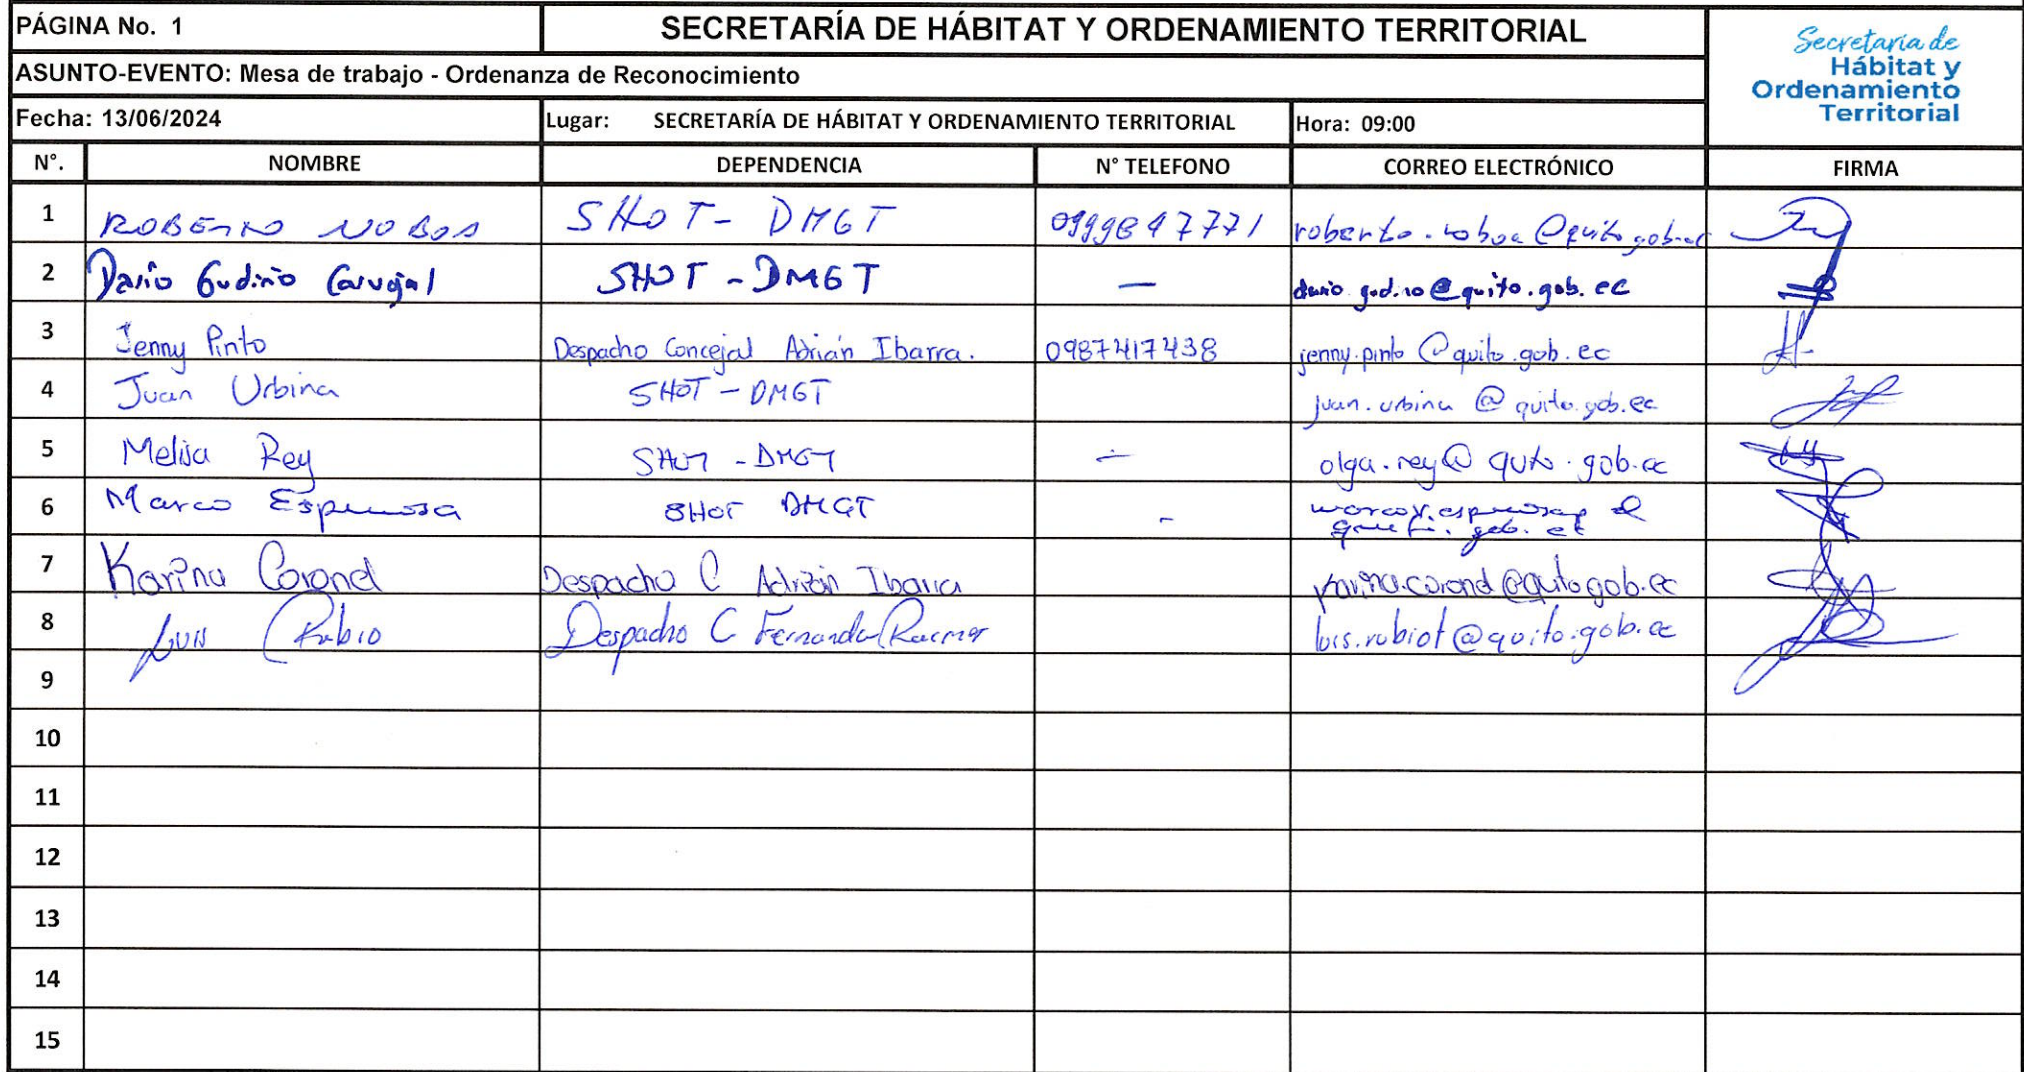 PÁGINA No. 1 SECRETARÍA DE HÁBITAT Y ORDENAMIENTO TERRITORIAL
Secretaría de
Hábitat y
Ordenamiento
Territorial
ASUNTO-EVENTO: Mesa de trabajo - Ordenanza de Reconocimiento
Fecha: 13/06/2024 Lugar: SECRETARÍA DE HÁBITAT Y ORDENAMIENTO TERRITORIAL Hora: 09:00
N°. NOMBRE DEPENDENCIA N° TELEFONO CORREO ELECTRÓNICO FIRMA
1 ROBERTO NOBOA SHOT - DMGT 0999847771
2 Darío Gudiño Carvajal SHOT - DMGT — dario.gudino@quito.gob.ec
3 Jenny Pinto Despacho Concejal Adrián Ibarra. 0987417438 jenny.pinto@quito.gob.ec
4 Juan Urbina SHOT - DMGT juan.urbina@quito.gob.ec
5 Melisa Rey SHOT - DMGT — olga.rey@quito.gob.ec
6 Marco Espinosa SHOT DMGT -
7 Karina Coronel Despacho C Adrián Ibarra karina.coronel@quito.gob.ec
8 Luis Rubio Despacho C Fernanda Racines luis.rubiot@quito.gob.ec
9
10
11
12
13
14
15